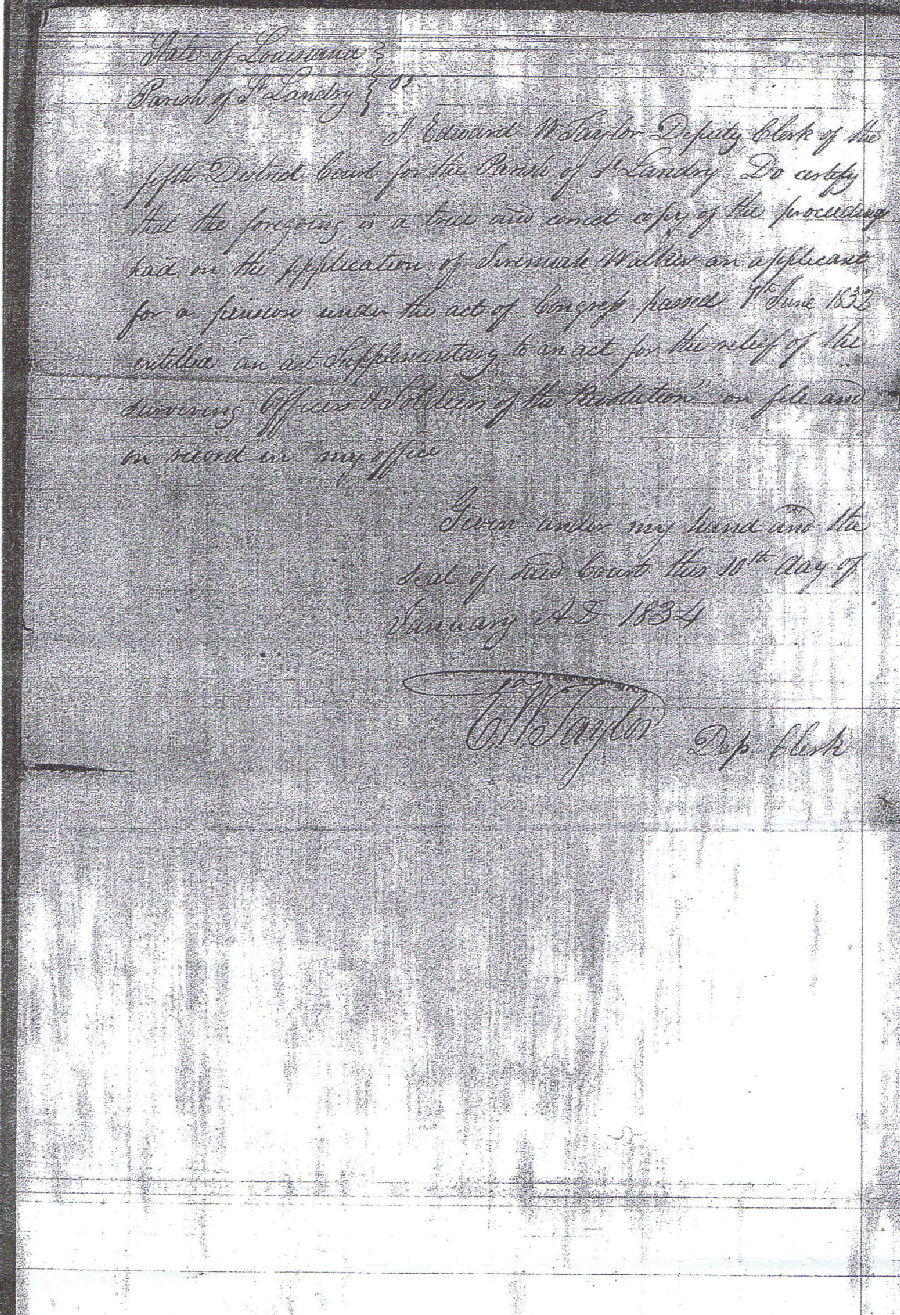 State of Louisiana }
Parish of St Landry } ss.
I Edward W Taylor Deputy Clerk of the
fifth District Court for the Parish of St Landry Do certify
that the foregoing is a true and correct copy of the proceedings
had on the application of Jeremiah Walker an applicant
for a pension under the act of Congress passed 7th June 1832
entitled "an act Supplementary to an act for the relief of the
surviving Officers & Soldiers of the Revolution" on file and
on record in my office
Given under my hand and the
seal of said Court this 10th day of
January A D 1834
E W Taylor Dep. Clerk